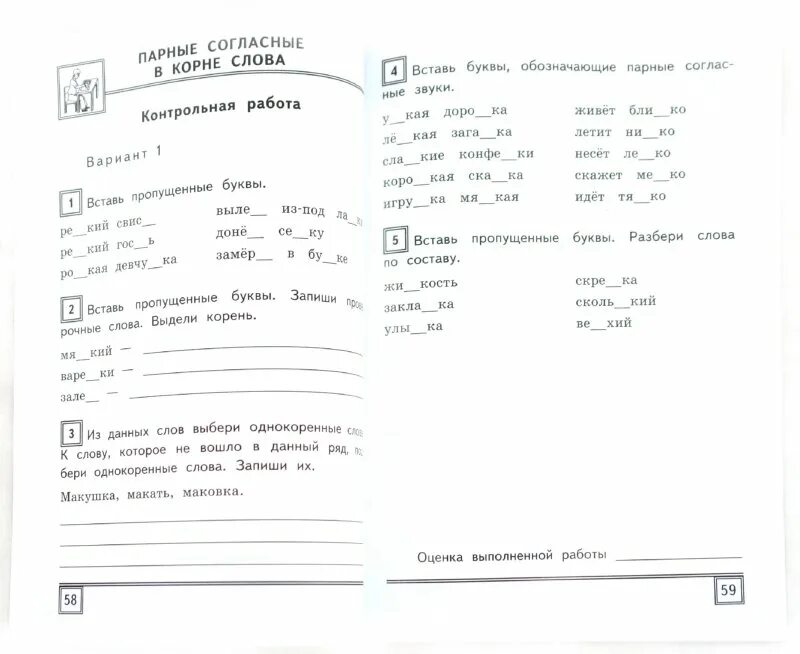 ПАРНЫЕ СОГЛАСНЫЕ
В КОРНЕ СЛОВА
Контрольная работа
Вариант 1
1 Вставь пропущенные буквы.
ре__кий свис__ выле__ из-под ла__
ре__кий гос__ь донё__ се__ку
ро__кая девчу__ка замёр__ в бу__ке
2 Вставь пропущенные буквы. Запиши
рочные слова. Выдели корень.
мя__кий —
варе__ки —
зале__ —
3 Из данных слов выбери однокоренные
К слову, которое не вошло в данный ряд,
бери однокоренные слова. Запиши их.
Макушка, макать, маковка.
58
4 Вставь буквы, обозначающие парные соглас-
ные звуки.
у__кая доро__ка живёт бли__ко
лё__кая зага__ка летит ни__ко
сла__кие конфе__ки несёт ле__ко
коро__кая ска__ка скажет ме__ко
игру__ка мя__кая идёт тя__ко
5 Вставь пропущенные буквы. Разбери слова
по составу.
жи__кость скре__ка
закла__ка сколь__кий
улы__ка ве__хий
Оценка выполненной работы
59